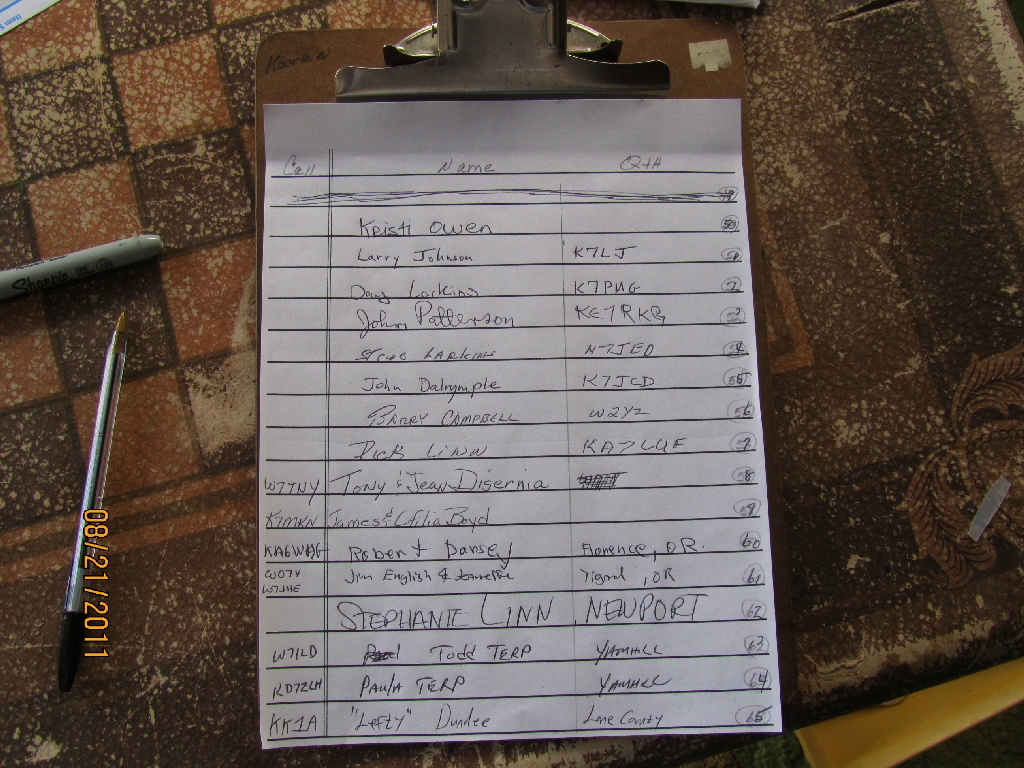 Item S
Karen
Call Name QTH
Kristi Owen 50
Larry Johnson K7LJ 51
Doug Larkins K7PUG
John Patterson KE7RKG 53
Steve Larkins N7JED 54
John Dalrymple K7JCD 55
Barry Campbell W2YZ 56
Dick Linn KA7LUF
W7TNY Tony & Jean Disernia 58
K7MKN James & Lilia Boyd 59
Robert Dorsey Florence, OR. 60
WO7Y Jim English & Tigard, OR 61
W7JHE
STEPHANIE LINN NEWPORT 62
W7ILD Todd TERP YAMHILL 63
KD7ZLH Paula TERP YAMHILL 64
KK1A "Lefty" Dundee Lane County 65
Sharpie
08/21/2011